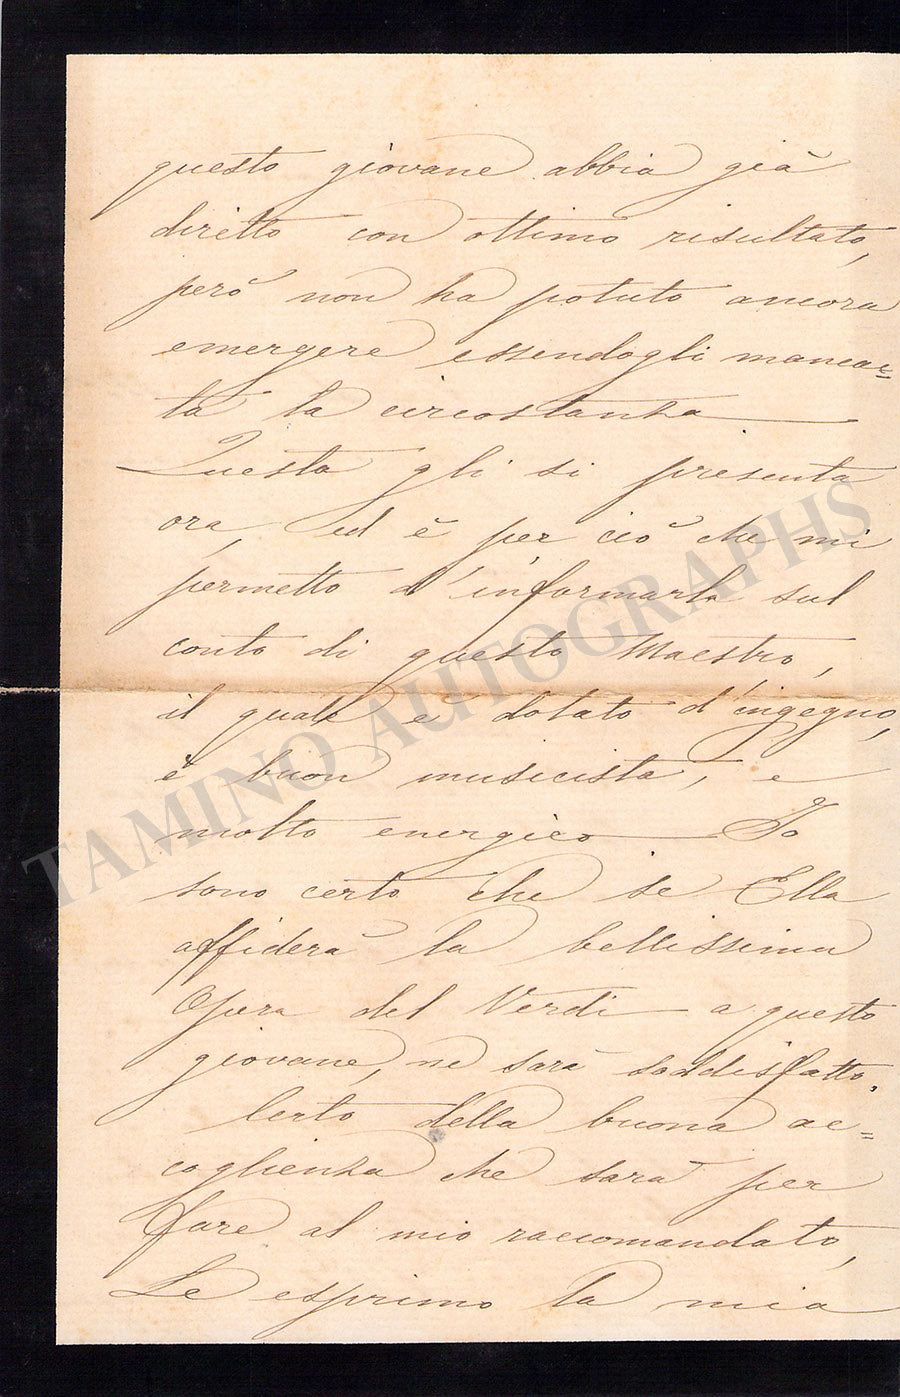 questo giovane abbia già
diretto con ottimo risultato,
però non ha potuto ancora
emergere essendogli manca=
ta la circostanza
Questa gli si presenta
ora, ed è per ciò che mi
permetto d'informarla sul
conto di questo Maestro,
il quale è dotato d'ingegno,
è buon musicista, e
molto energico — Io
sono certo che se Ella
affiderà la bellissima
Opera del Verdi a questo
giovane, ne sarà soddisfatto.
Certo della buona ac=
coglienza che sarà per
fare al mio raccomandato,
Le esprimo la mia
TAMINO AUTOGRAPHS